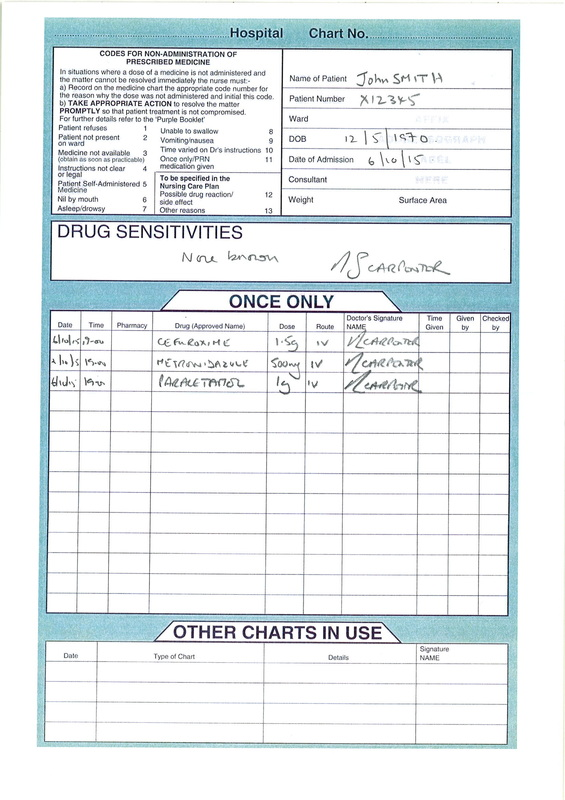 Hospital Chart No.
CODES FOR NON-ADMINISTRATION OF
PRESCRIBED MEDICINE
In situations where a dose of a medicine is not administered and
the matter cannot be resolved immediately the nurse must:-
a) Record on the medicine chart the appropriate code number for
the reason why the dose was not administered and initial this code.
b) TAKE APPROPRIATE ACTION to resolve the matter
PROMPTLY so that patient treatment is not compromised.
For further details refer to the 'Purple Booklet'
Patient refuses 1
Patient not present 2
on ward
Medicine not available 3
(obtain as soon as practicable)
Instructions not clear 4
or legal
Patient Self-Administered 5
Medicine
Nil by mouth 6
Asleep/drowsy 7
Unable to swallow 8
Vomiting/nausea 9
Time varied on Dr's instructions 10
Once only/PRN 11
medication given
To be specified in the
Nursing Care Plan
Possible drug reaction/ 12
side effect
Other reasons 13
Name of Patient John SMITH
Patient Number X12345
Ward
DOB 12/5/1970
Date of Admission 6/10/15
Consultant
Weight Surface Area
DRUG SENSITIVITIES
None known CARPENTER
ONCE ONLY
Date Time Pharmacy Drug (Approved Name) Dose Route Doctor's Signature NAME Time Given Given by Checked by
6/10/15 CEFUROXIME 1.5g IV CARPENTER
METRONIDAZOLE 500mg IV CARPENTER
PARACETAMOL 1g IV CARPENTER
OTHER CHARTS IN USE
Date Type of Chart Details Signature NAME